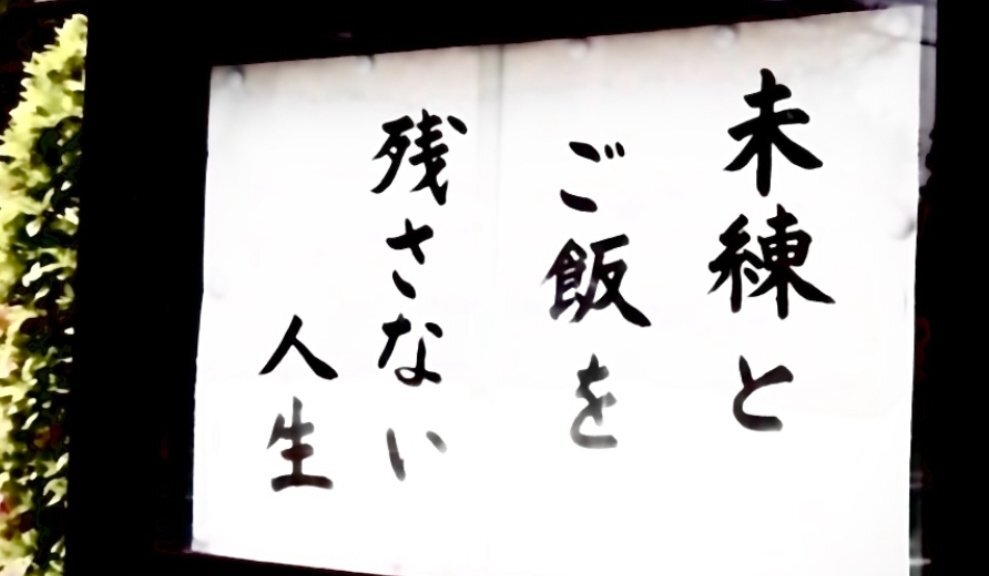 未練と
ご飯を
残さない
人生